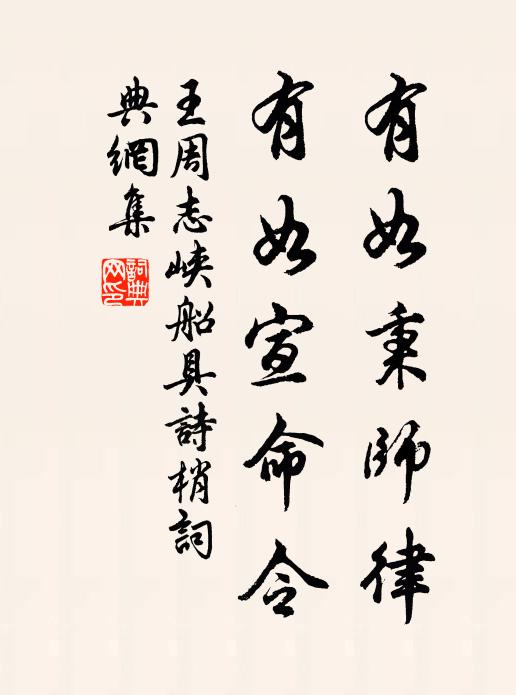 有如秉師律
有如宣命令
王周志峽船具詩梢詞
典網集
詞典
网印